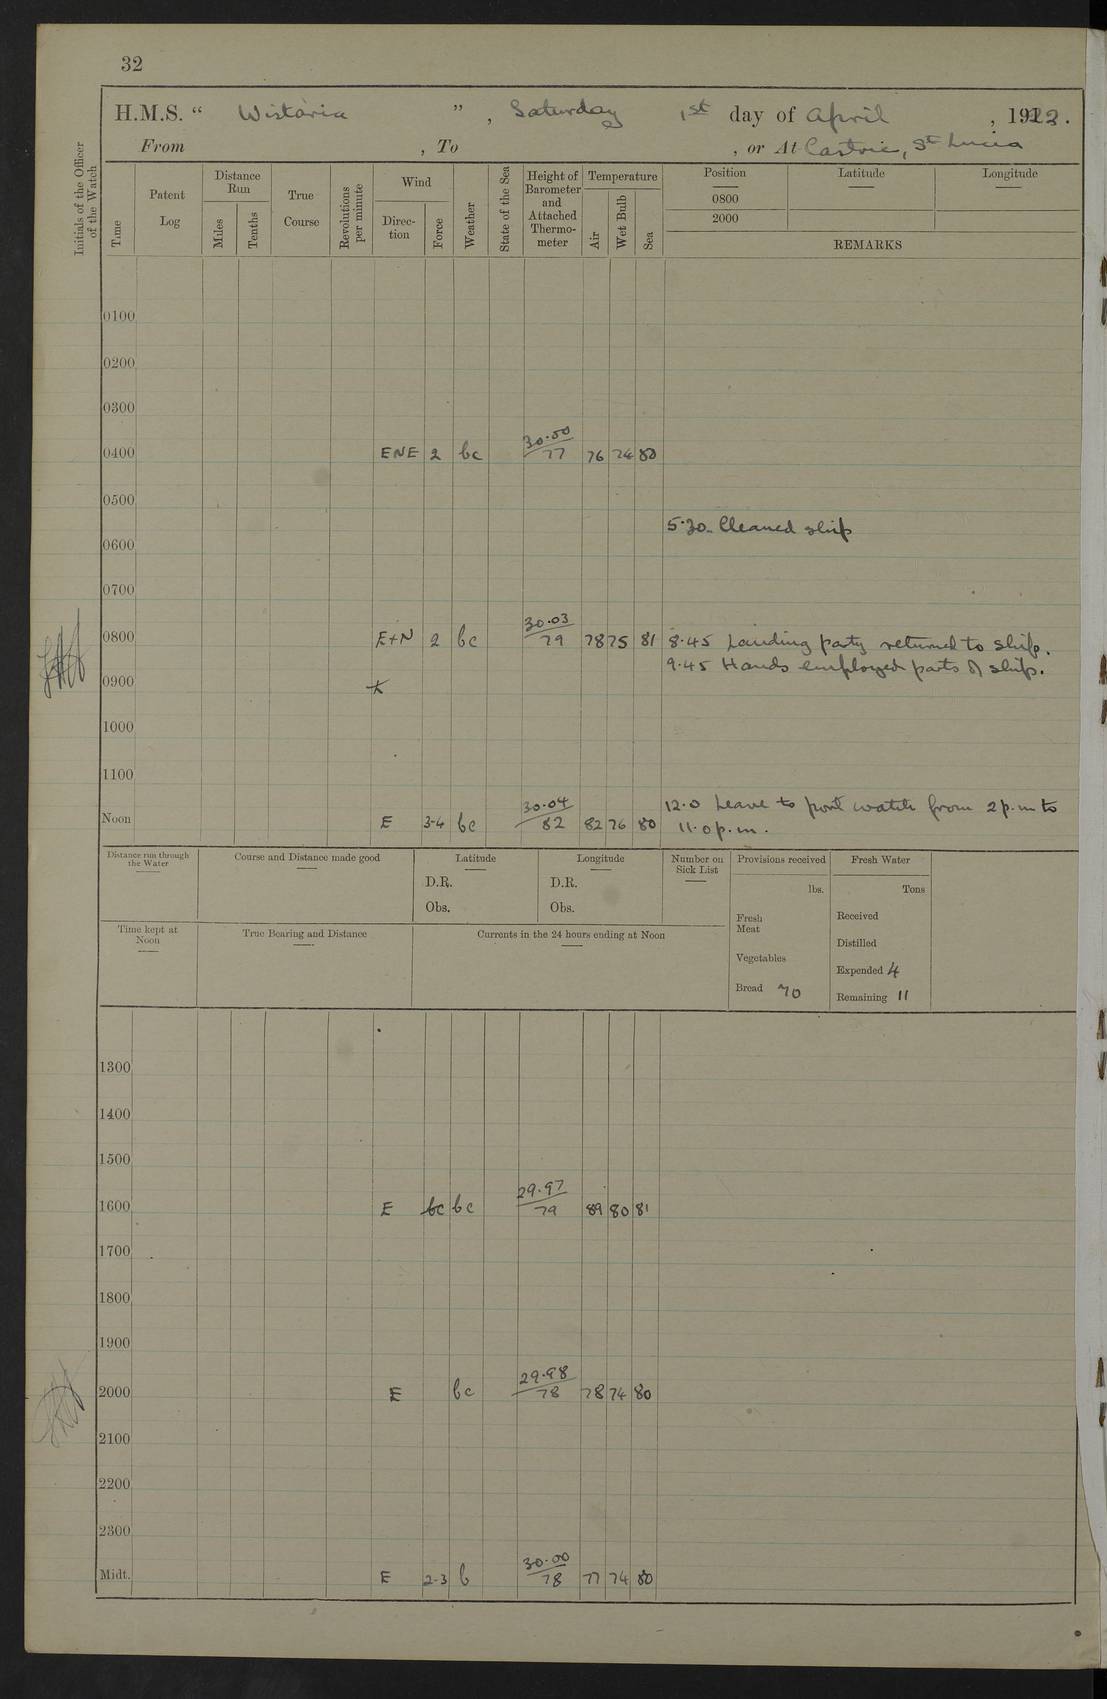 32
H.M.S. “ Wistaria ” , Saturday 1st day of April , 1922.
From , To , or At Castrie, St Lucia
Initials of the Officer of the Watch
Time
Patent Log
Distance Run
Miles
Tenths
True Course
Revolutions per minute
Wind
Direction
Force
Weather
State of the Sea
Height of Barometer and Attached Thermometer
Temperature
Air
Wet Bulb
Sea
Position
0800
2000
Latitude
Longitude
REMARKS
0100
0200
0300
30.00
0400 ENE 2 bc 77 76 74 80
0500
5.30. Cleaned ship
0600
0700
30.03
0800 E+N 2 bc 79 78 75 81 8.45 Landing party returned to ship.
9.45 Hands employed parts of ship.
0900
1000
1100
30.04 12.0 Leave to port watch from 2 p.m to
Noon E 3-4 bc 82 82 76 80 11.0 p.m.
Distance run through the Water
Course and Distance made good
Latitude
D.R.
Obs.
Longitude
D.R.
Obs.
Number on Sick List
Provisions received
lbs.
Fresh Meat
Vegetables
Bread 70
Fresh Water
Tons
Received
Distilled
Expended 4
Remaining 11
Time kept at Noon
True Bearing and Distance
Currents in the 24 hours ending at Noon
1300
1400
1500
29.97
1600 E bc bc 79 89 80 81
1700
1800
1900
29.98
2000 E bc 78 78 74 80
2100
2200
2300
30.00
Midt. E 2-3 b 78 77 74 80